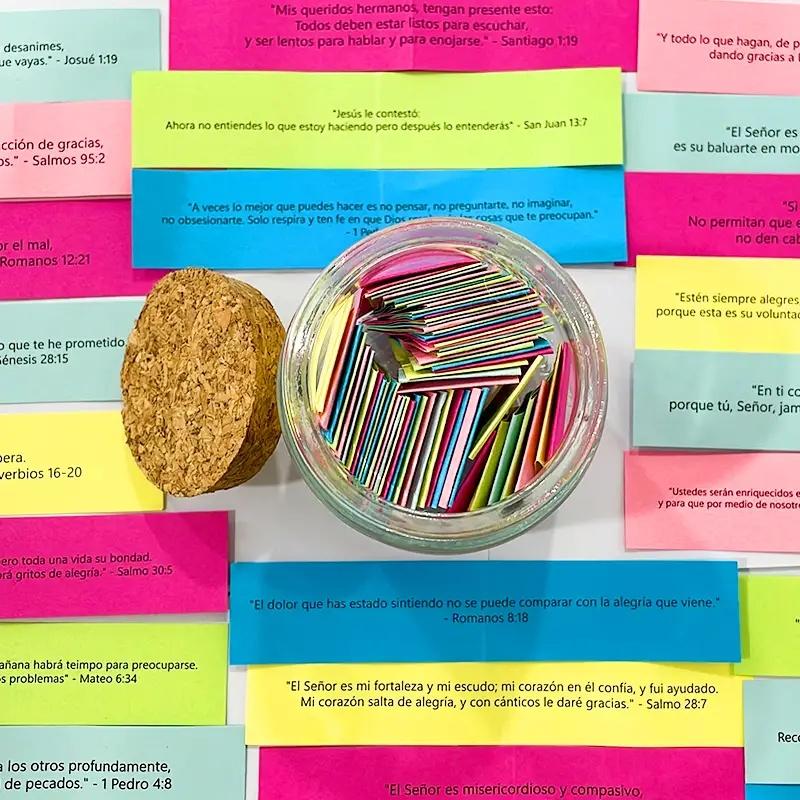 "Mis queridos hermanos, tengan presente esto:
Todos deben estar listos para escuchar,
y ser lentos para hablar y para enojarse." - Santiago 1:19
desanimes,
ue vayas." - Josué 1:19
"Y todo lo que hagan, de p
dando gracias a
"Jesús le contestó:
Ahora no entiendes lo que estoy haciendo pero después lo entenderás" - San Juan 13:7
cción de gracias,
os." - Salmos 95:2
"El Señor es
es su baluarte en mo
"A veces lo mejor que puedes hacer es no pensar, no preguntarte, no imaginar,
no obsesionarte. Solo respira y ten fe en que Dios cosas que te preocupan."
- 1 Ped
"Si
No permitan que e
no den cab
or el mal,
Romanos 12:21
"Estén siempre alegres,
porque esta es su volunta
o que te he prometido.
Génesis 28:15
"En ti co
porque tú, Señor, jam
pera.
verbios 16-20
"Ustedes serán enriquecidos e
y para que por medio de nosotr
pero toda una vida su bondad.
rá gritos de alegría." - Salmo 30:5
"El dolor que has estado sintiendo no se puede comparar con la alegría que viene."
- Romanos 8:18
añana habrá teimpo para preocuparse.
os problemas" - Mateo 6:34
"El Señor es mi fortaleza y mi escudo; mi corazón en él confía, y fui ayudado.
Mi corazón salta de alegría, y con cánticos le daré gracias." - Salmo 28:7
Reco
a los otros profundamente,
de pecados." - 1 Pedro 4:8
"El Señor es misericordioso y compasivo,